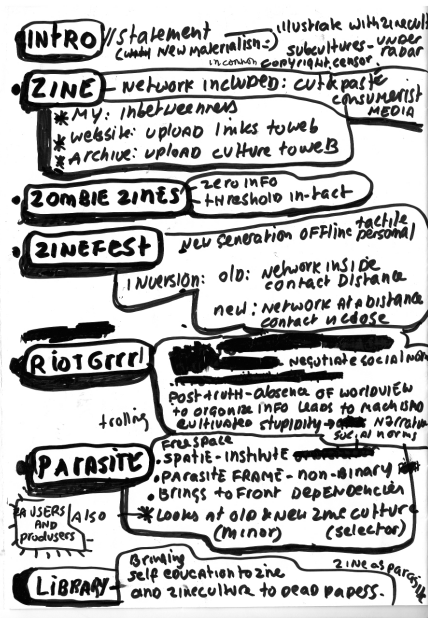 INTRO // Statement
(why New Materialism :-)
illustrate with zinecult
subcultures - UNDER RADAR
in common copyright, censor.
ZINE - NETWORK INCLUDED: CUT & PASTE
CONSUMERIST
MEDIA
* MY: inbetweeners
* Website: UPLOAD links to web
* ARCHIVE: UPLOAD CULTURE TO WEB
ZOMBIE ZINES
- ZERO INFO
- tHRESHOLD IN-tACT
ZINEFEST
NEW GENERATION OFFLINE tactile
personal
INVERSION: OLD: NETWORK INSIDE
CONTACT DISTANCE
NEW: NETWORK AT A DISTANCE
CONTACT
RIOTGrrrl
NEGOTIATE SOCIAL
POST truth - absence OF WORLDVIEW
to ORGANIZE INFO LEADS to
cultivated stupidity →
social norms
trolling
PARASITE
FREESPACE
• SPATIE - INSTITUTE
• PARASITE FRAME - NON-BINARY
• BRINGS to FRONT DEPENDENCIES
USERS
AND
produsers
Also → * LOOKS AT OLD & NEW ZINE CULTURE
(MINOR) (selector)
LIBRARY
Bringing
self EDUCATION to ZINE
AND ZINECULTURE to DEAD PAPERS.
ZINE as parasite